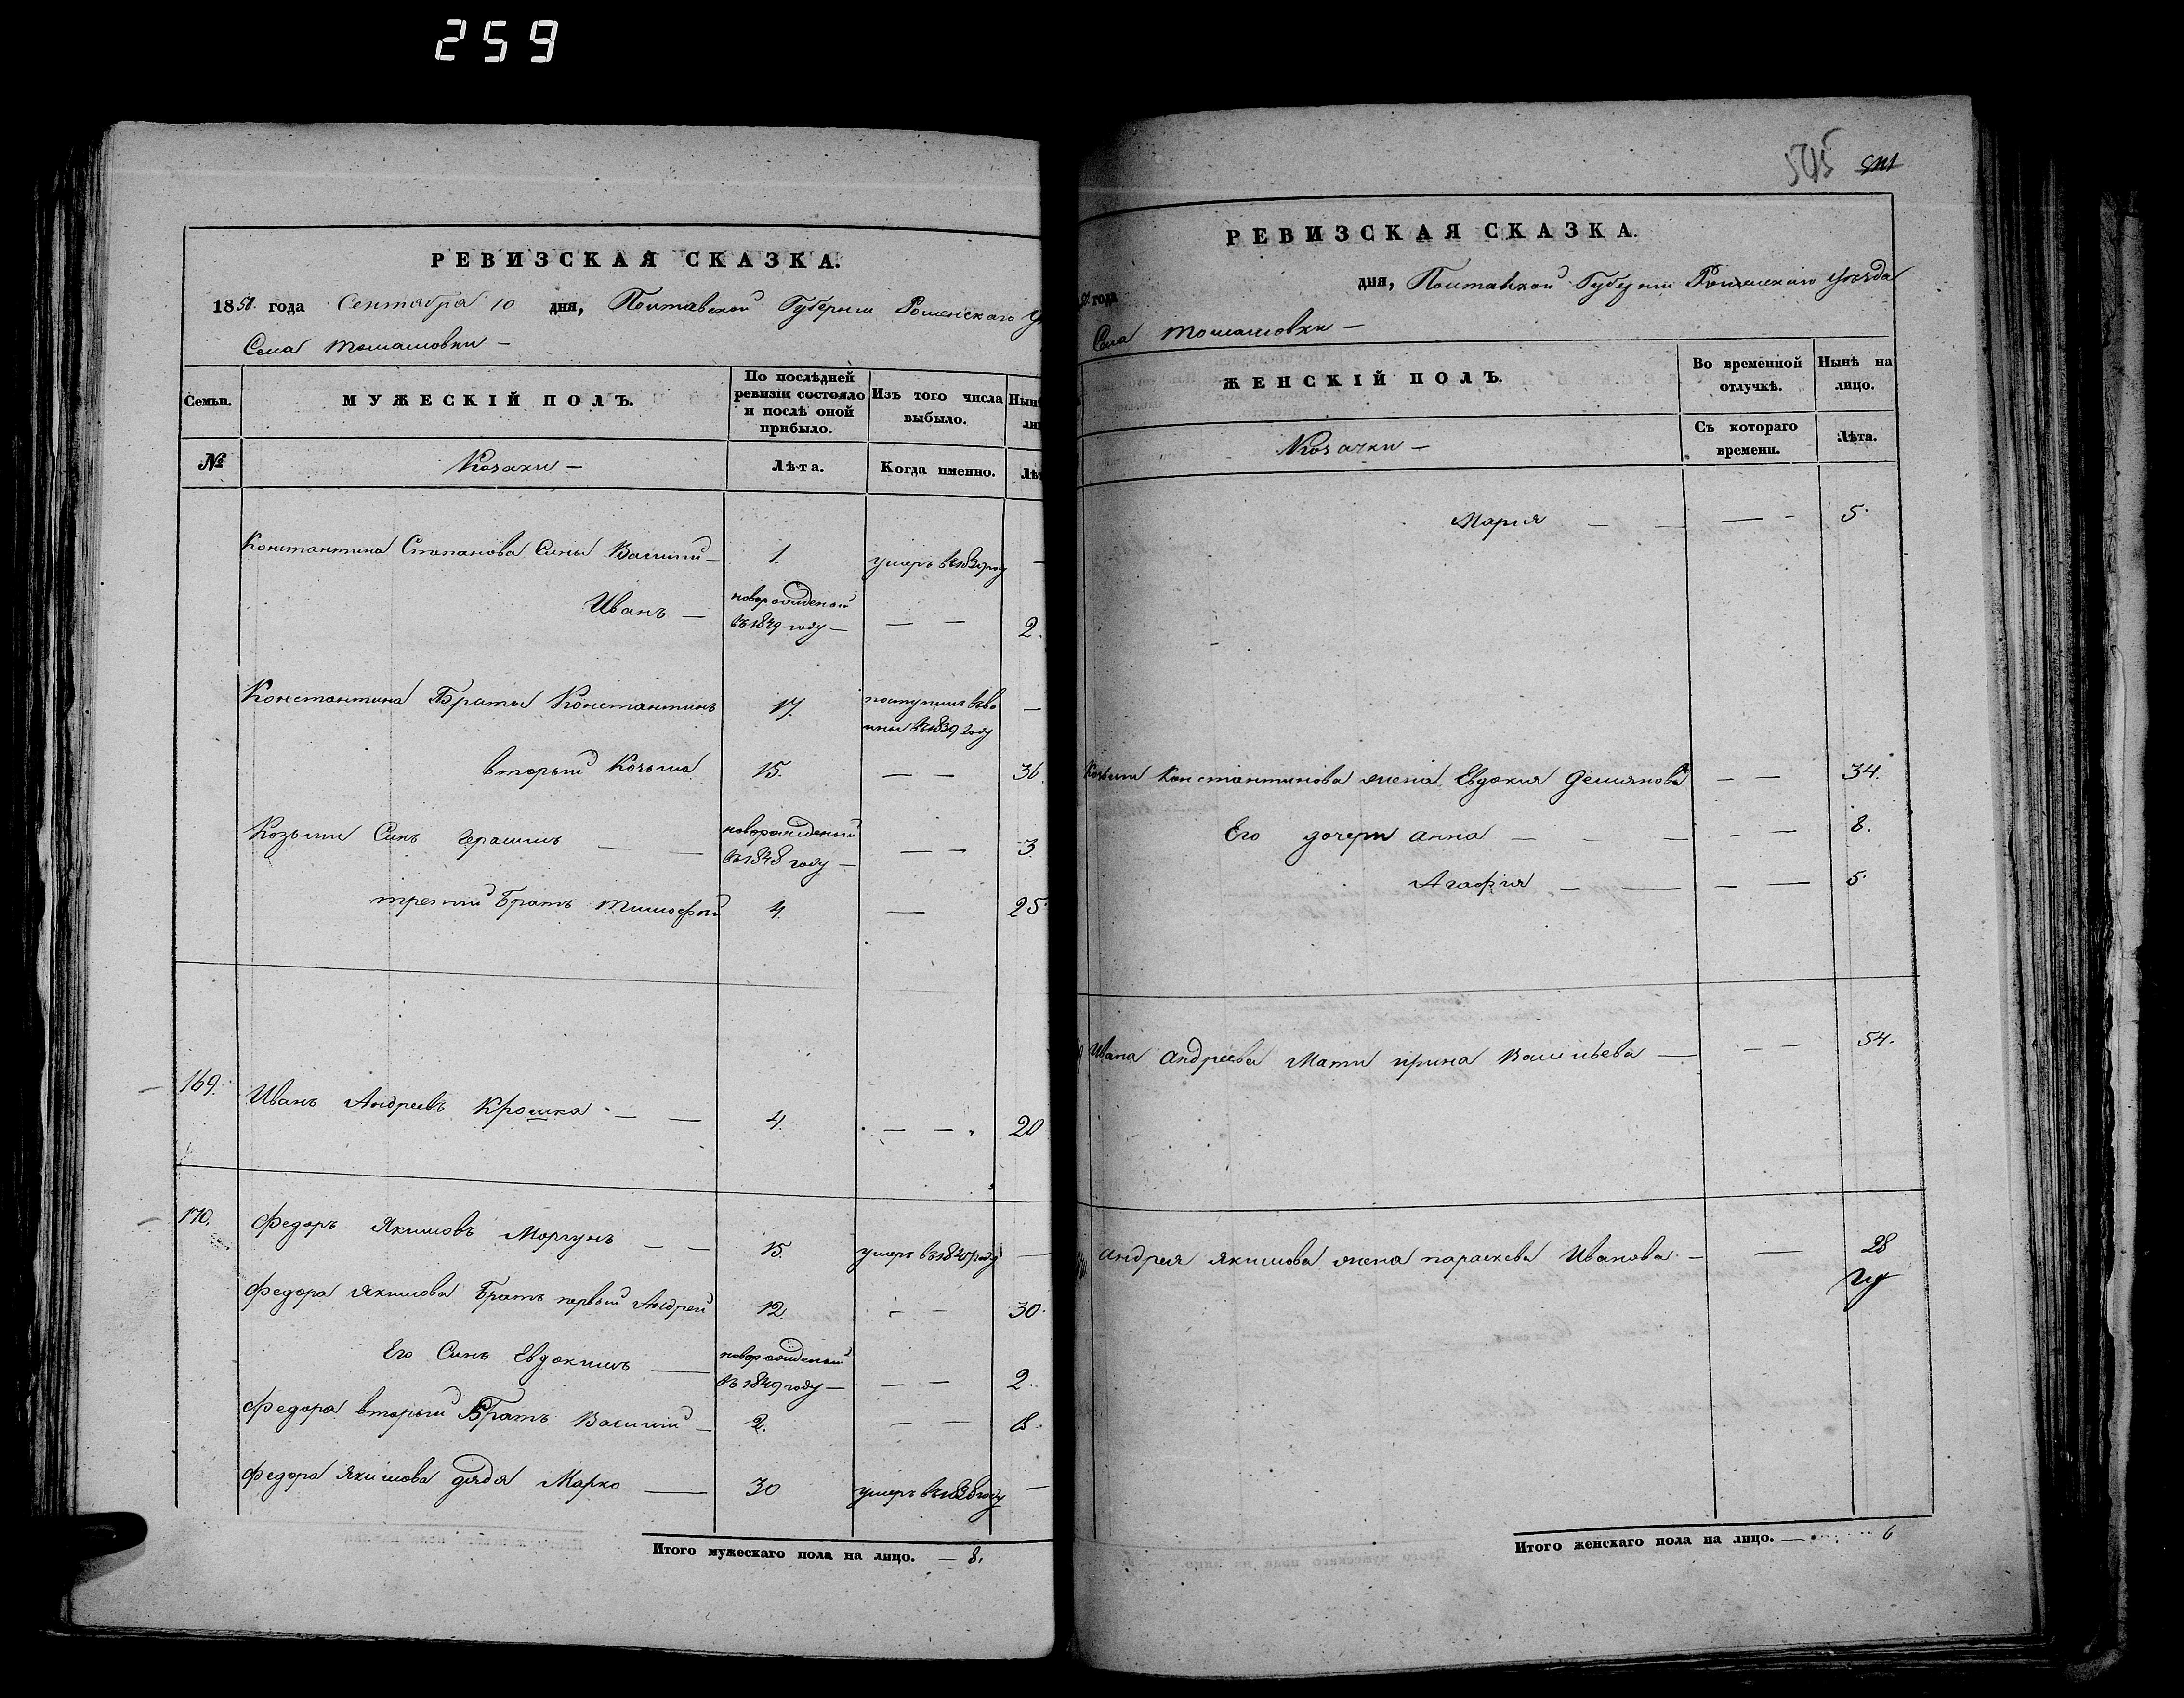 259
РЕВИЗСКАЯ СКАЗКА.
1850 года Сентября 10 дня, Полтавской Губернии Роменскаго
Села Томашовки —
Семьи.
МУЖЕСКІЙ ПОЛЪ.
По послѣдней ревизіи состояло и послѣ оной прибыло.
Изъ того числа выбыло.
№
Козаки —
Лѣта.
Когда именно.
Константина Степанова Сины Василій — 1. умеръ въ 1839 году —
Иванъ — новорожденый въ 1849 году — — — 2.
Константина Братья Константинъ 17. поступилъ въ во
ины въ 1839 году —
вторый Козьма 15. — — 36.
Козьми Синъ Герасимъ — — новорожденый въ 1848 году — — — 3.
третий Братъ Тимофей 4. — 25.
169. Иванъ Андреевъ Крошка — — 4. — — 20
170. Федоръ Якимовъ Моргунъ — — 15. умеръ въ 1847 году —
Федора Якимова Братъ первый Андрей 12. — — 30.
Его Синъ Евдокимъ — новорожденый въ 1849 году — — — 2.
Федора вторый Братъ Василий — 2. — — 18.
Федора Якимова дядя Марко — 30 умеръ въ 1838 году —
Итого мужескаго пола на лицо. — 8.
545
РЕВИЗСКАЯ СКАЗКА.
года дня, Полтавской Губернии Роменскаго уѣзда
Села Томашовки —
ЖЕНСКІЙ ПОЛЪ.
Во временной отлучкѣ.
Нынѣ на лицо.
Козачки —
Съ котораго времени.
Лѣта.
Мария — — — - 5.
Козьми Константинова жена Евдокия Демянова — — 34.
Его дочери Анна — - — - — 8.
Агафия — — — — 5.
Ивана Андреева Мати Ирина Васильева — — — 54.
Андрея Якимова жена Параскева Иванова — — 28
Итого женскаго пола на лицо. — 6